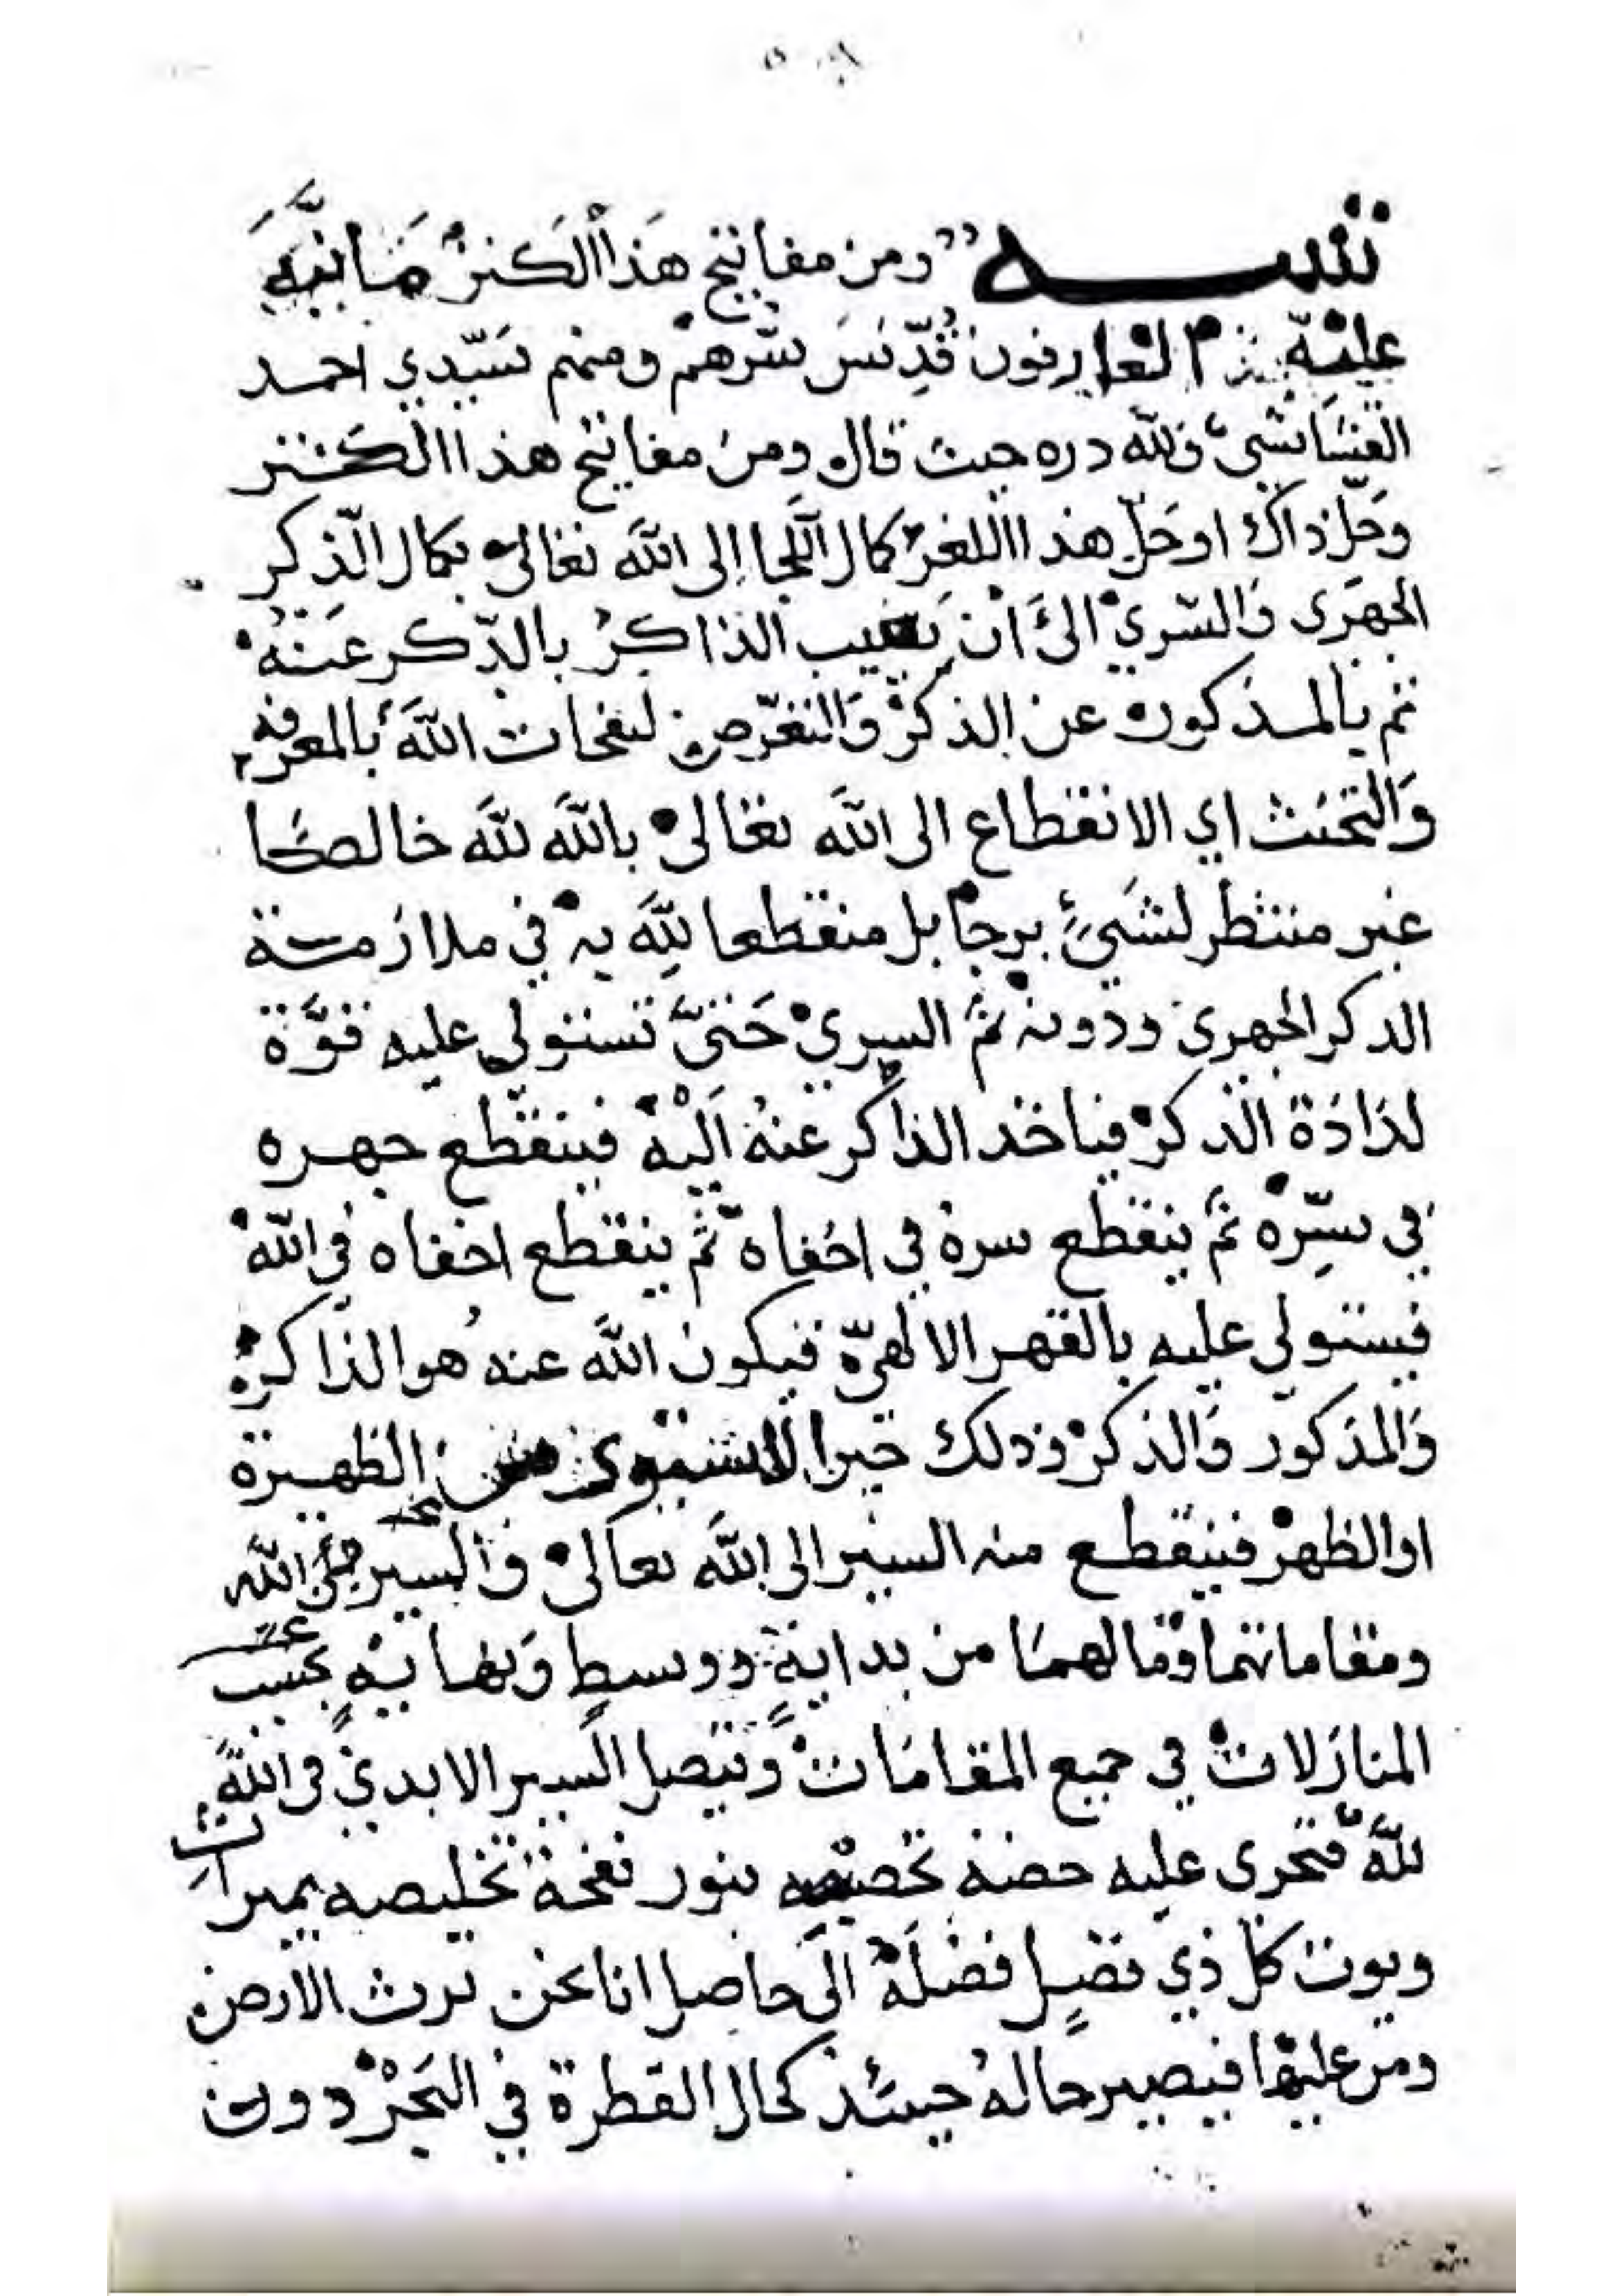 تنبيه ومن مفاتيح هَذا الكَنز مَا نبَّهَ
عليْه العارفون قُدِّسَ سّرهمْ ومنهم سَيّدي احمد
القشَاشيّ فلله دره حيث قال ومن مفاتيح هذا الكنز
وَحَلّ ذاك اوحَلّ هذا اللغز كمال اللّجا إلى اللَّه تعالى بكمال الذّكر
الجهرَى وَالسّريْ الىَ انْ يَغيب الذاكرُ بالذّكر عَنْهُ
ثم بالمذكور عن الذكرْ وَالتعّرض لنفحات اللَّه بالمعرفه
وَالتحنث اي الانقطاع الى اللَّه تعَالى باللَّه للَّه خالصًا
غير منتظر لشَيْءٍ يرجا بل منقطعا للَّه به في ملازمة
الدكر الجهري ودونه ثمّ السريْ حَتىَّ تستولي عليه قوَّة
لذاذة الذكرْ فياخد الذاكر عنهُ اليْه فينقطع جهره
في سّرِه ثمَّ ينقطع سرهُ في اخفاه ثمّ ينقطع اخفاه في اللّه
فيستولى عليه بالقهر الالهيّ فيكون اللَّه عنه هُو الذاكرْ
وَالمذكور وَالذكرْ وذلك حين الاستوى الظهيرة
اوالظهرْ فينقطع منه السير الى اللَّه تعالىْ وَالسير اللّه
ومقاماتهما وَما لهمَا من بدايةٍ ووسطٍ وَنهايةٍ بحَسب
المنازلات في جميع المقامَات وَيتصل السير الابديّ فى اللَّه
للَّه فتجرى عليه حصنه بنور نفحة تخليصه بميراث
ويوت كل ذي فضلٍ فضلَهْ الىَ حاصل انا نحن نرث الارض
ومن عليها فيصير حالهُ حينئذ كحال القطرة في البَحْر دون